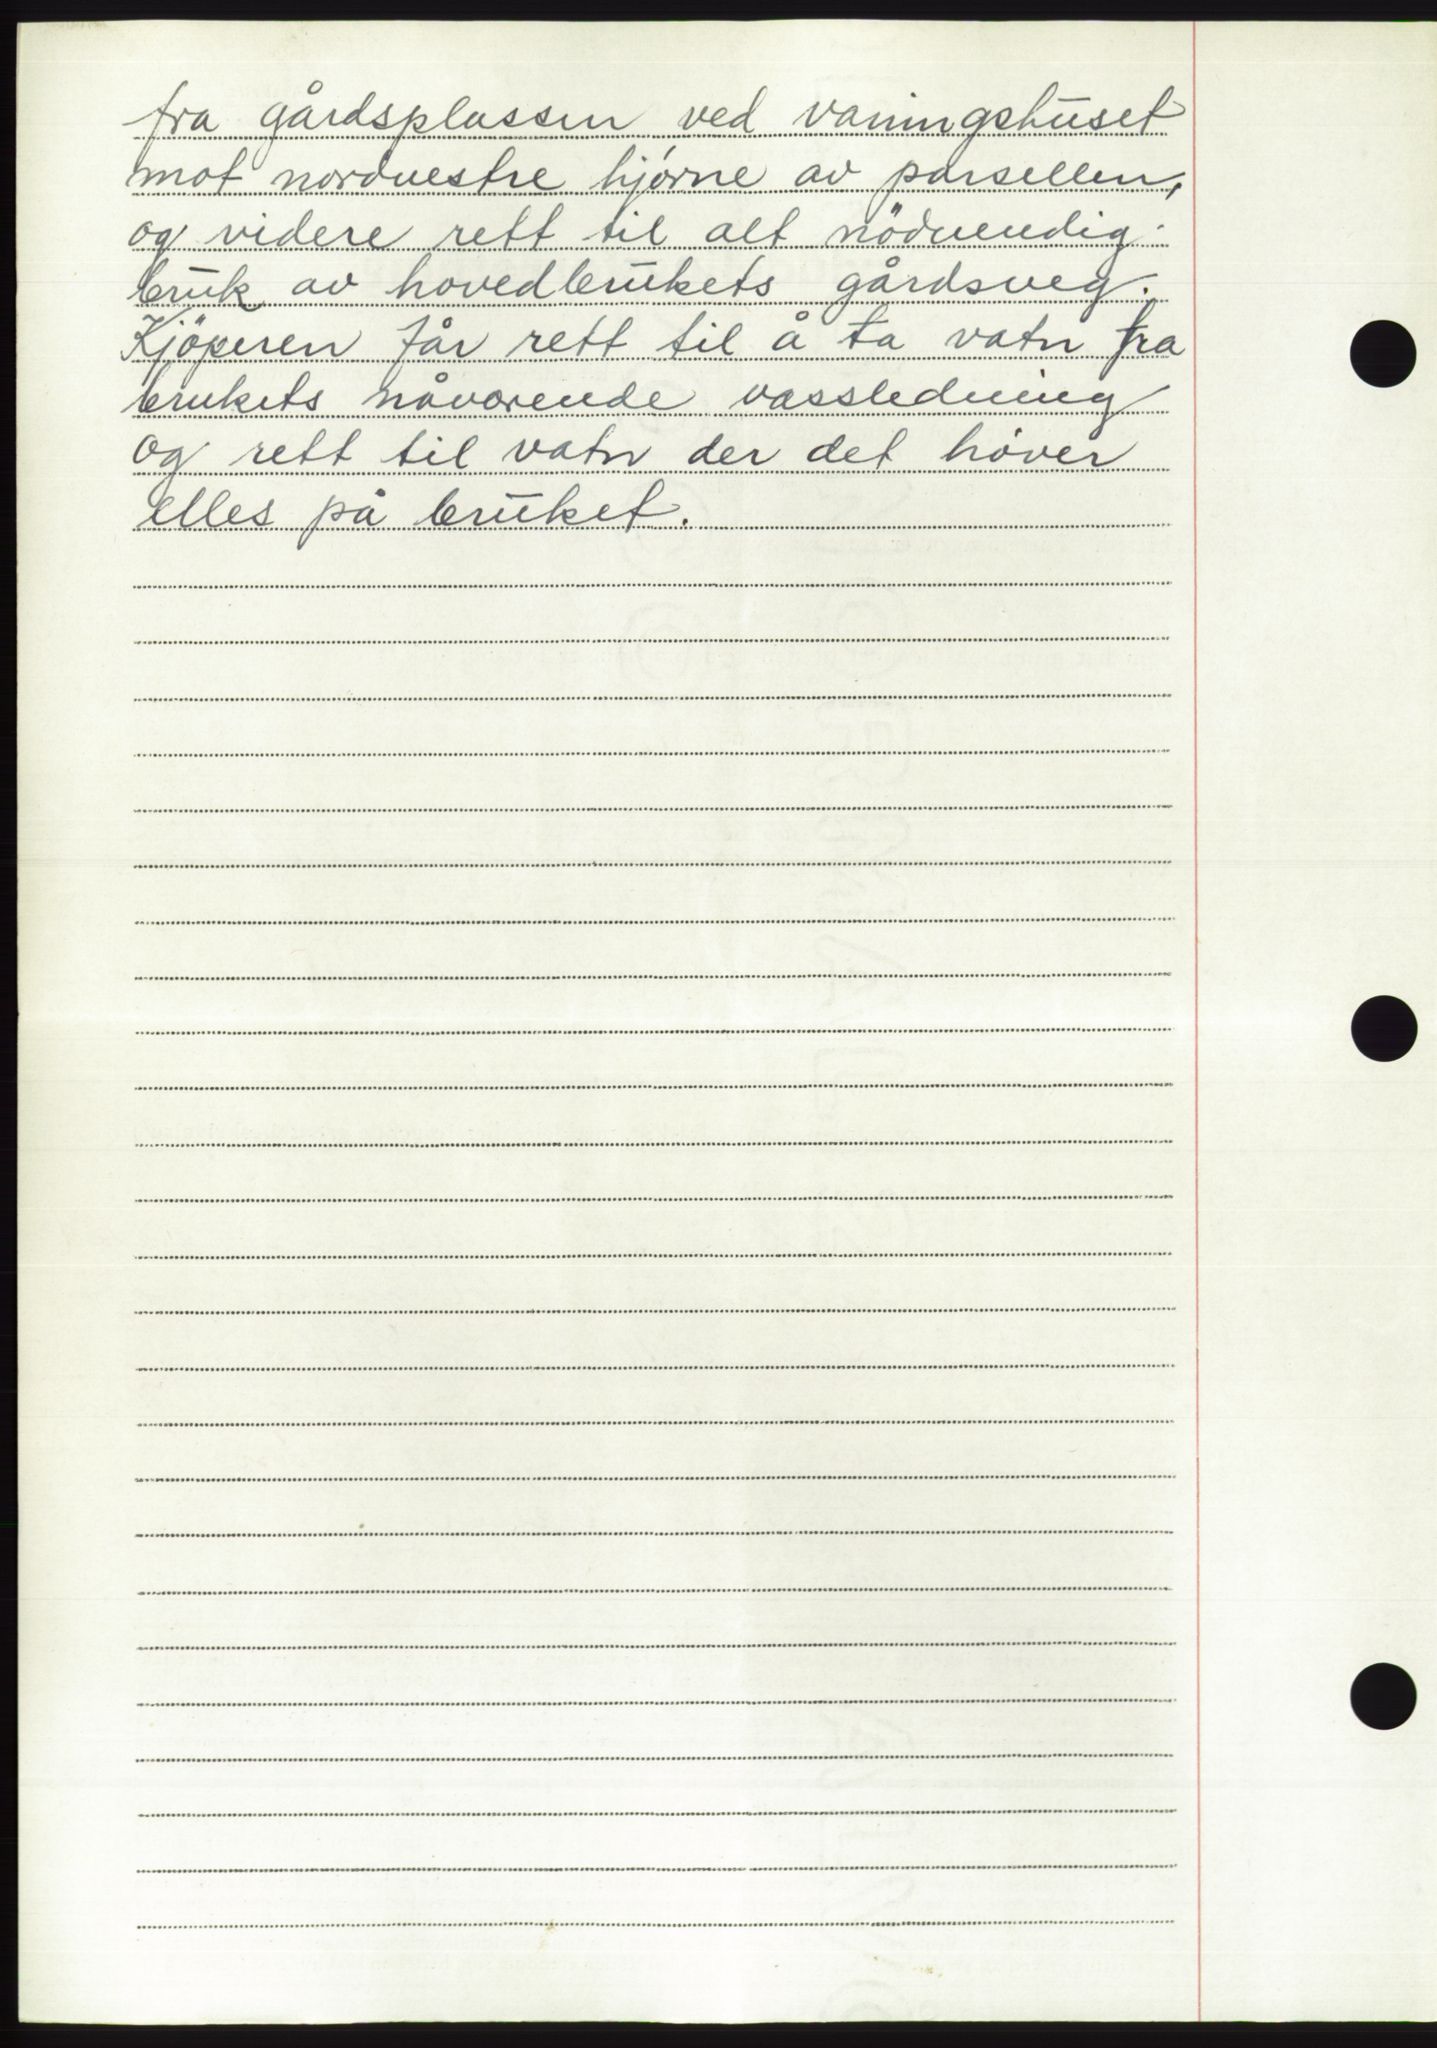 fra gårdsplassen ved vaningshuset
mot nordvestre hjörne av parsellen,
og videre rett til alt nödvendig
bruk av hovedbrukets gårdsveg.
Kjöperen får rett til å ta vatn fra
brukets nåværende vassledning
og rett til vatn der det höver
elles på bruket.